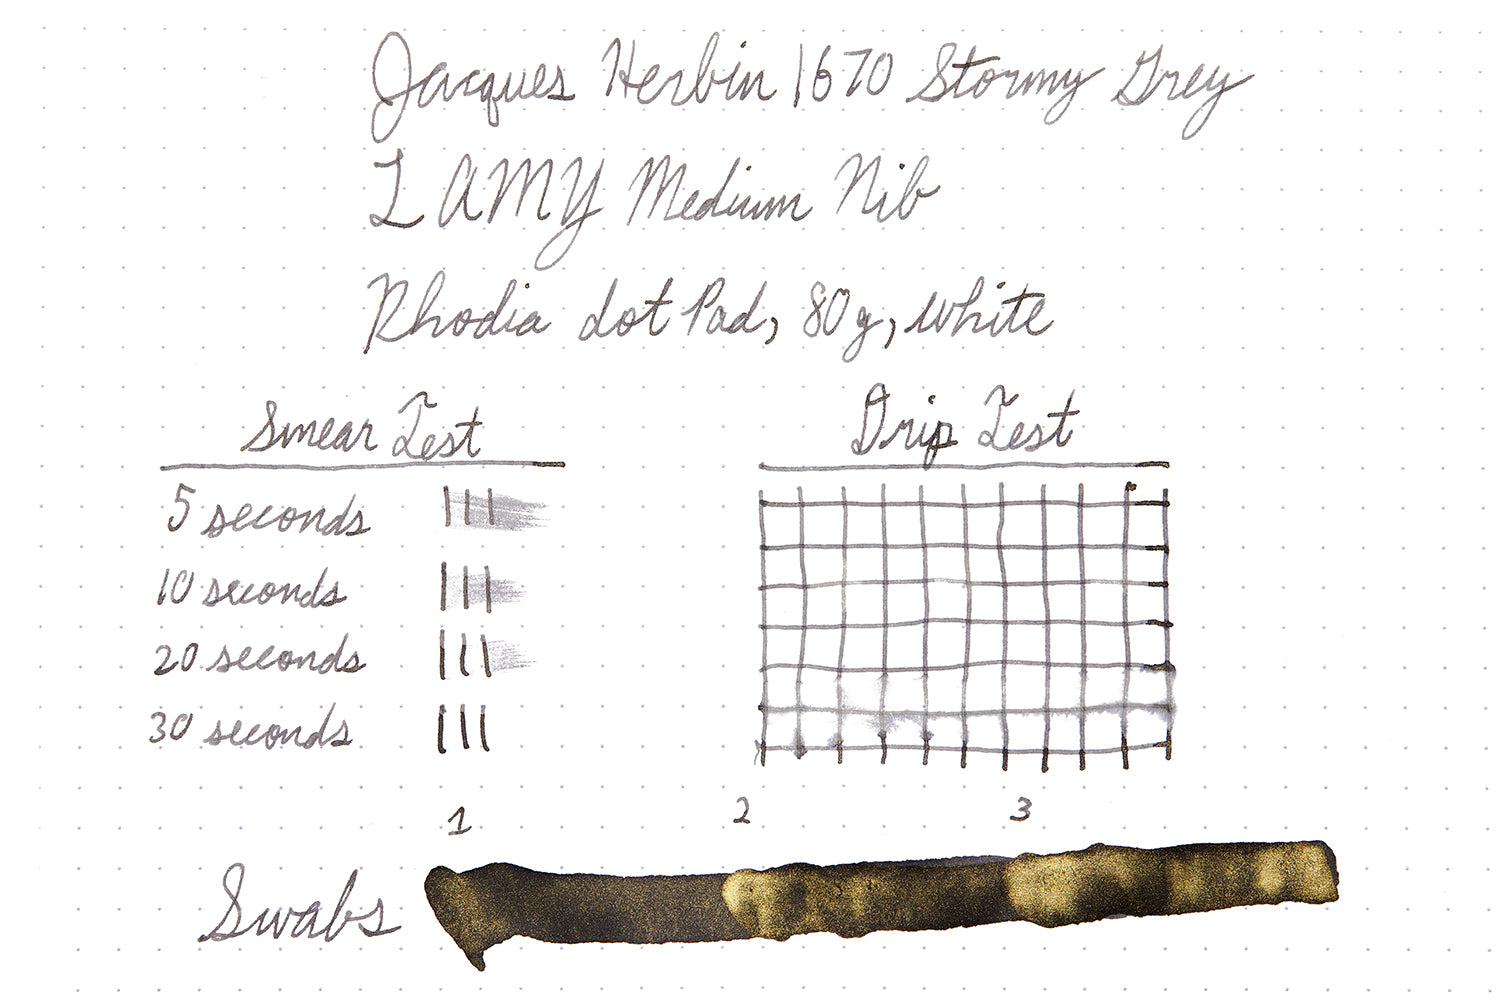 Jacques Herbin 1670 Stormy Grey
LAMY Medium Nib
Rhodia dot Pad, 80g, white
Smear Test
5 seconds
10 seconds
20 seconds
30 seconds
Drip Test
1 2 3
Swabs